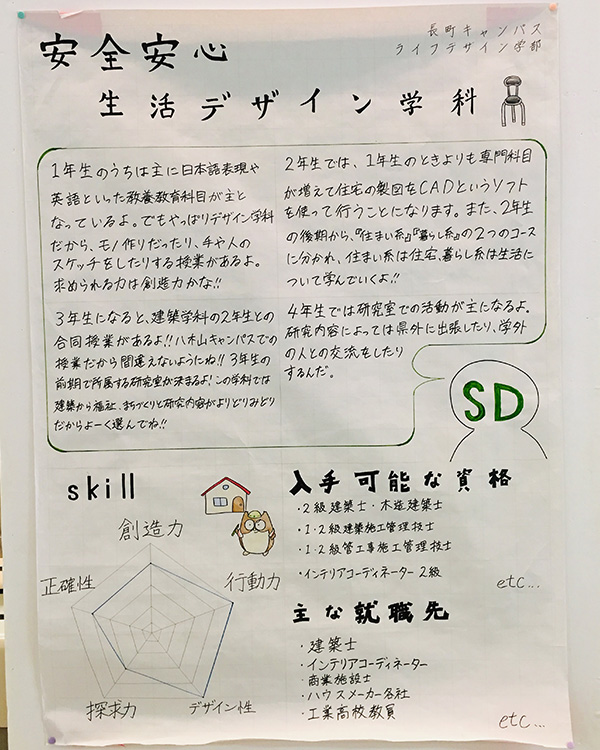 長町キャンパス
ライフデザイン学部
安全安心
生活デザイン学科
1年生のうちは主に日本語表現や
英語といった教養教育科目が主と
なっているよ。でもやっぱりデザイン学科
だから、モノ作りだったり、手や人の
スケッチをしたりする授業があるよ。
求められる力は創造力かな!!
2年生では、1年生のときよりも専門科目
が増えて住宅の製図をCADというソフト
を使って行うことになります。また、2年生
の後期から、『住まい系』『暮らし系』の2つのコース
に分かれ、住まい系は住宅、暮らし系は生活に
ついて学んでいくよ!!
3年生になると、建築学科の2年生との
合同授業があるよ!!八木山キャンパスでの
授業だから間違えないようにね!!3年生の
前期で所属する研究室が決まるよ!この学科では
建築から福祉、まちづくりと研究内容がよりどりみどり
だからよーく選んでね!!
4年生では研究室での活動が主になるよ。
研究内容によっては県外に出張したり、学外
の人との交流をしたり
するんだ。
SD
skill
創造力
正確性
行動力
探求力
デザイン性
入手可能な資格
・2級建築士・木造建築士
・1・2級建築施工管理技士
・1・2級管工事施工管理技士
・インテリアコーディネーター2級
etc...
主な就職先
・建築士
・インテリアコーディネーター
・商業施設士
・ハウスメーカー各社
・工業高校教員
etc...